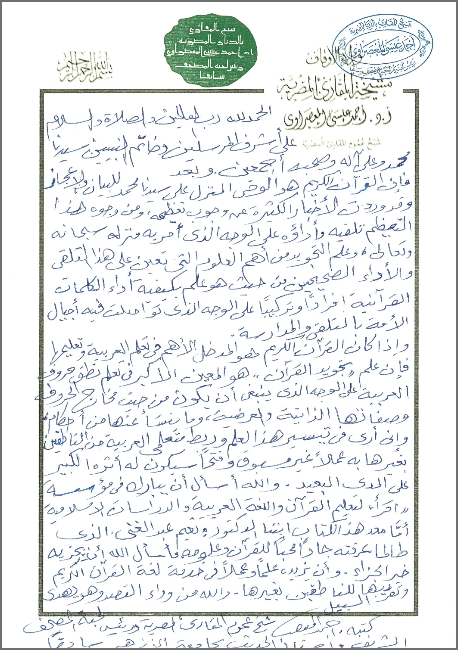 شيخ المقارئ
بالديار المصرية
أ.د/ أحمد عيسى المعصراوي
سابقا
بسم الله الرحمن الرحيم
مشيخة المقارئ المصرية
أ.د. أحمد عيسى المعصراوي
الحمد لله رب العالمين والصلاة والسلام
على أشرف المرسلين وخاتم النبيين سيدنا
محمد وعلى آله وصحبه أجمعين. وبعد
فإن القرآن الكريم هو الوحي المنزل على سيدنا محمد للبيان والإعجاز
وقد وردت الأخبار الكثيرة عن وجوب تعظيمه، ومن وجوه هذا
التعظيم تلقيه وأداؤه على الوجه الذي أمر به منزله سبحانه
وتعالى، وعلم التجويد من أهم العلوم التي تعين على هذا التلقي
والأداء الصحيحين من حيث هو علم بكيفية أداء الكلمات
القرآنية إفرادًا وتركيبًا على الوجه الذي تواصلت فيه أجيال
الأمة بالتلقي والمدارسة.
وإذا كان القرآن الكريم هو المدخل الأهم في تعلم العربية وتعليمها
فإن علم "تجويد القرآن" هو المعين الأكبر في تعلم نطق حروف
العربية على الوجه الذي ينبغي أن يكون من حيث مخارج الحروف
وصفاتها الذاتية والعرضية، وما ينشأ عنها من أحكام،
وإني أرى في تيسير هذا العلم وربطه بمتعلمي العربية من الناطقين
بغيرها به عملاً غير مسبوق وفتحًا سيكون له أثره الكبير
على المدى البعيد. والله أسأل أن يبارك في مؤسسة
"اقرأ" لتعليم القرآن واللغة العربية والدراسات الإسلامية
أما معد هذا الكتاب ابننا الدكتور عبد الغني، الذي
طالما عرفته جادًا محبًا للقرآن وعلومه فأسأل الله أن يجزيه
خير الجزاء. وأن يزيده علمًا وعملاً في خدمة لغة القرآن الكريم
للناطقين بغيرها. والله من وراء القصد وهو يهدي
السبيل
كتبه أ.د. أحمد عيسى شيخ عموم المقارئ المصرية ورئيس لجنة المصحف